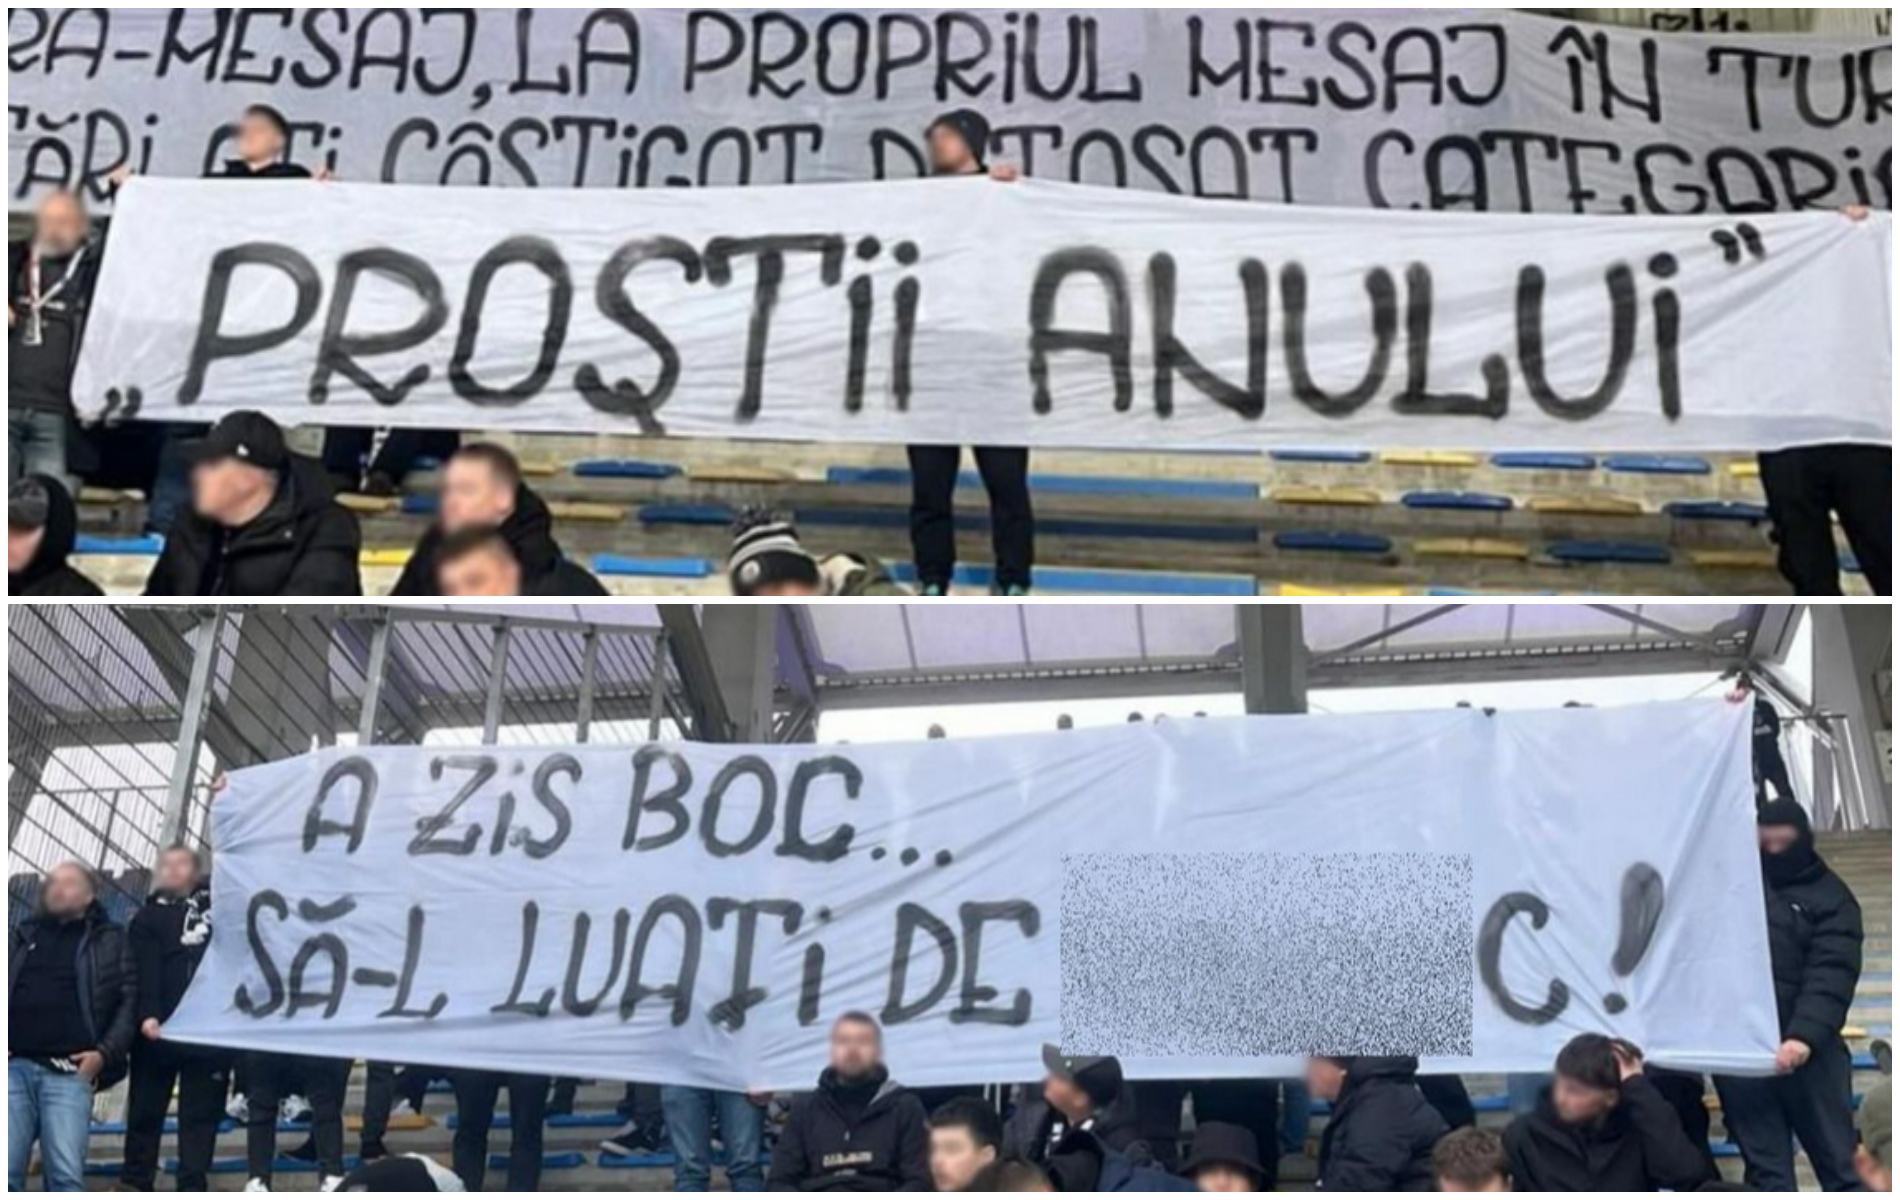 RA-MESAJ, LA PROPRiUL MESAJ ÎN TUR
CÂȘTiGAT DETAȘAT CATEGORi
„PROȘTii ANULUi”
A ZiS BOC...
SĂ-L LUAȚi DE C!